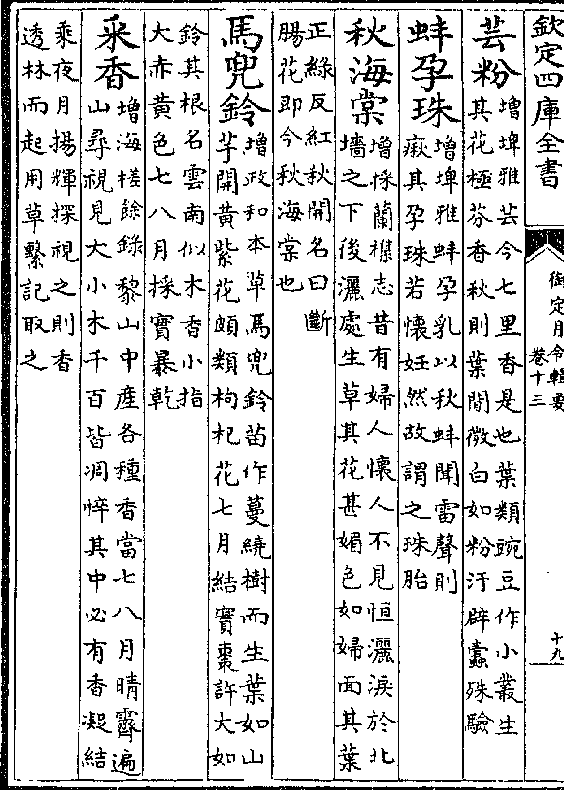 欽定四庫全書
御定月令輯要
卷十三
十九
芸粉
增埤雅芸今七里香是也葉類豌豆作小叢生
其花極芬香秋則葉間微白如粉汙辟蠹殊驗
蚌孕珠
增埤雅蚌孕乳以秋蚌聞雷聲則
瘷其孕珠若懷妊然故謂之珠胎
秋海棠
增採蘭襍志昔有婦人懷人不見恒灑淚於北
墻之下後灑處生草其花甚媚色如婦面其葉
正綠反紅秋開名曰斷
腸花即今秋海棠也
馬兜鈴
增政和本草馬兜鈴苗作蔓繞樹而生葉如山
芋開黃紫花頗類枸杞花七月結實棗許大如
鈴其根名雲南似木香小指
大赤黃色七八月採實暴乾
采香
增海槎餘錄黎山中產各種香當七八月晴霽遍
山尋視見大小木千百皆凋悴其中必有香凝結
乘夜月揚輝探視之則香
透林而起用草繫記取之